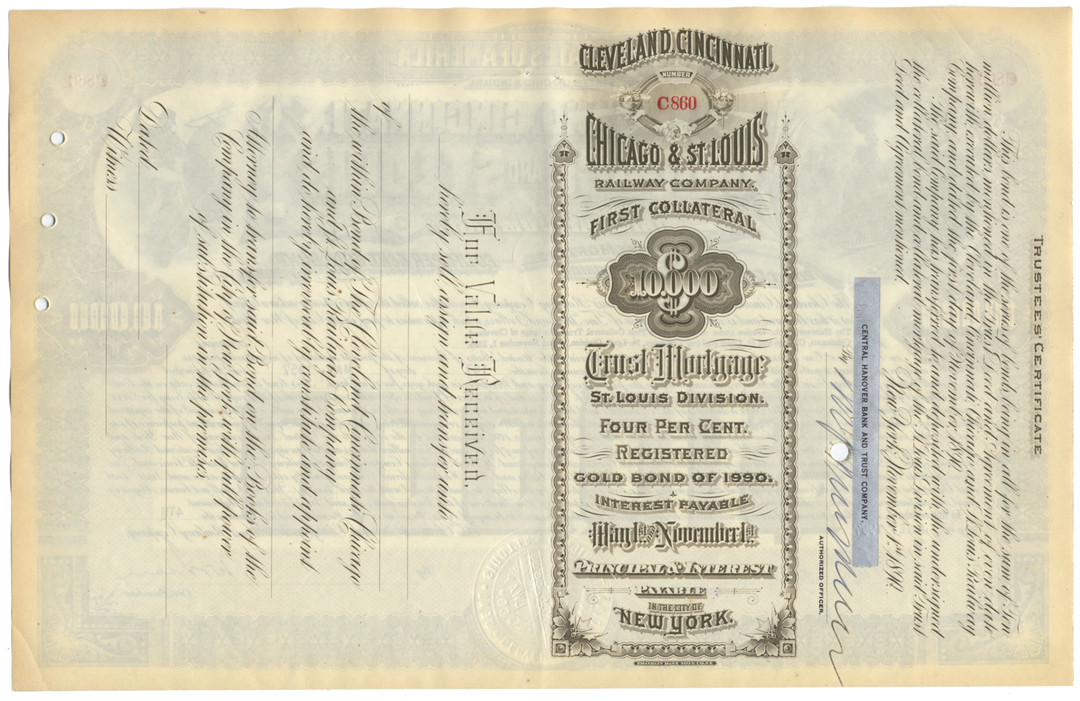 CLEVELAND, CINCINNATI,
NUMBER
C860
CHICAGO & ST. LOUIS
RAILWAY COMPANY.
FIRST COLLATERAL
$10,000
Trust Mortgage
ST. LOUIS DIVISION.
FOUR PER CENT.
REGISTERED
GOLD BOND OF 1990.
INTEREST PAYABLE
May 1st and November 1st
PRINCIPAL & INTEREST
PAYABLE
IN THE CITY OF
NEW YORK.
TRUSTEES CERTIFICATE
This bond is one of the series of bonds, being in all for the sum of Ten
million dollars mentioned in the Trust Deed and Agreement of even date
herewith executed by the Cleveland, Cincinnati, Chicago and St. Louis Railway
Company, and dated the first day of November, 1890.
And the said Company has transferred to and deposited with the undersigned
the collateral bonds and collateral mortgage of the St. Louis Division in said Trust
Deed and Agreement mentioned.
New York, December 1st 1890.
CENTRAL HANOVER BANK AND TRUST COMPANY.
By
AUTHORIZED OFFICER.
For Value Received,
hereby sell, assign and transfer unto
the within Bond of The Cleveland, Cincinnati, Chicago
and St. Louis Railway Company,
and do hereby irrevocably constitute and appoint
Attorney to transfer the said Bond on the Books of the
Company in the City of New York, with full power
of substitution in the premises.
Dated
Witness